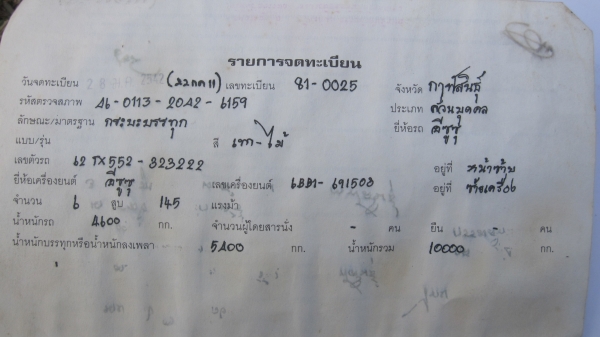 รายการจดทะเบียน
วันจดทะเบียน 28 เลขทะเบียน 81-0025 จังหวัด กาฬสินธุ์
รหัสตรวจสภาพ 46-0113-2042-6159 ประเภท ส่วนบุคคล
ลักษณะ/มาตรฐาน กระบะบรรทุก ยี่ห้อรถ อีซูซุ
แบบ/รุ่น สี เทา-ไม้
เลขตัวรถ 62 TX552-323222 อยู่ที่ หน้าซ้าย
ยี่ห้อเครื่องยนต์ อีซูซุ เลขเครื่องยนต์ 6BB1-691503 อยู่ที่ ซ้ายเครื่อง
จำนวน 6 สูบ 145 แรงม้า
น้ำหนักรถ 4600 กก. จำนวนผู้โดยสารนั่ง - คน ยืน - คน
น้ำหนักบรรทุกหรือน้ำหนักลงเพลา 5400 กก. น้ำหนักรวม 10000 กก.